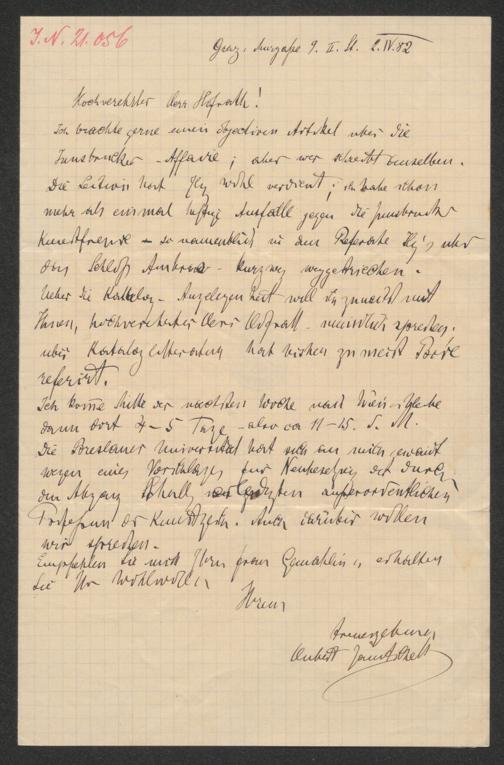 J. N. 21.056
Graz, Burgaße 9. II. St. 2.IV.82
Hochverehrter Herr Hofrath!
Ich brachte gerne einen objectiven Artikel über die
Innsbrucker-Affaire; aber wer schreibt denselben.
Die Lection hat Ilg wohl verdient; ich habe schon
mehr als einmal heftige Ausfälle gegen die Innsbrucker
Kunstfreunde - so namentlich in dem Referate Ilg's über
das Schloß Ambras - kurzweg weggestrichen.
Ueber die Katalog-Angelegenheit will ich zunächst mit
Ihnen, hochverehrter Herr Hofrath - mündlich sprechen.
über Katalogliteratur hat bisher zumeist Bode
referirt.
Ich komme Mitte der nächsten Woche nach Wien - bleibe
dann dort 4-5 Tage - also ca 11-15. d. M.
Die Breslauer Universität hat sich an mich gewandt
wegen eines Vorschlages zur Neubesetzung der durch
den Abgang Schultz erledigten außerordentlichen
Professur der Kunstgesch. Auch darüber wollen
wir sprechen.
Empfehlen Sie mich Ihrer Frau Gemahlin u. erhalten
Sie Ihr Wohlwollen
Ihrem
ergebenen
Hubert Janitschek